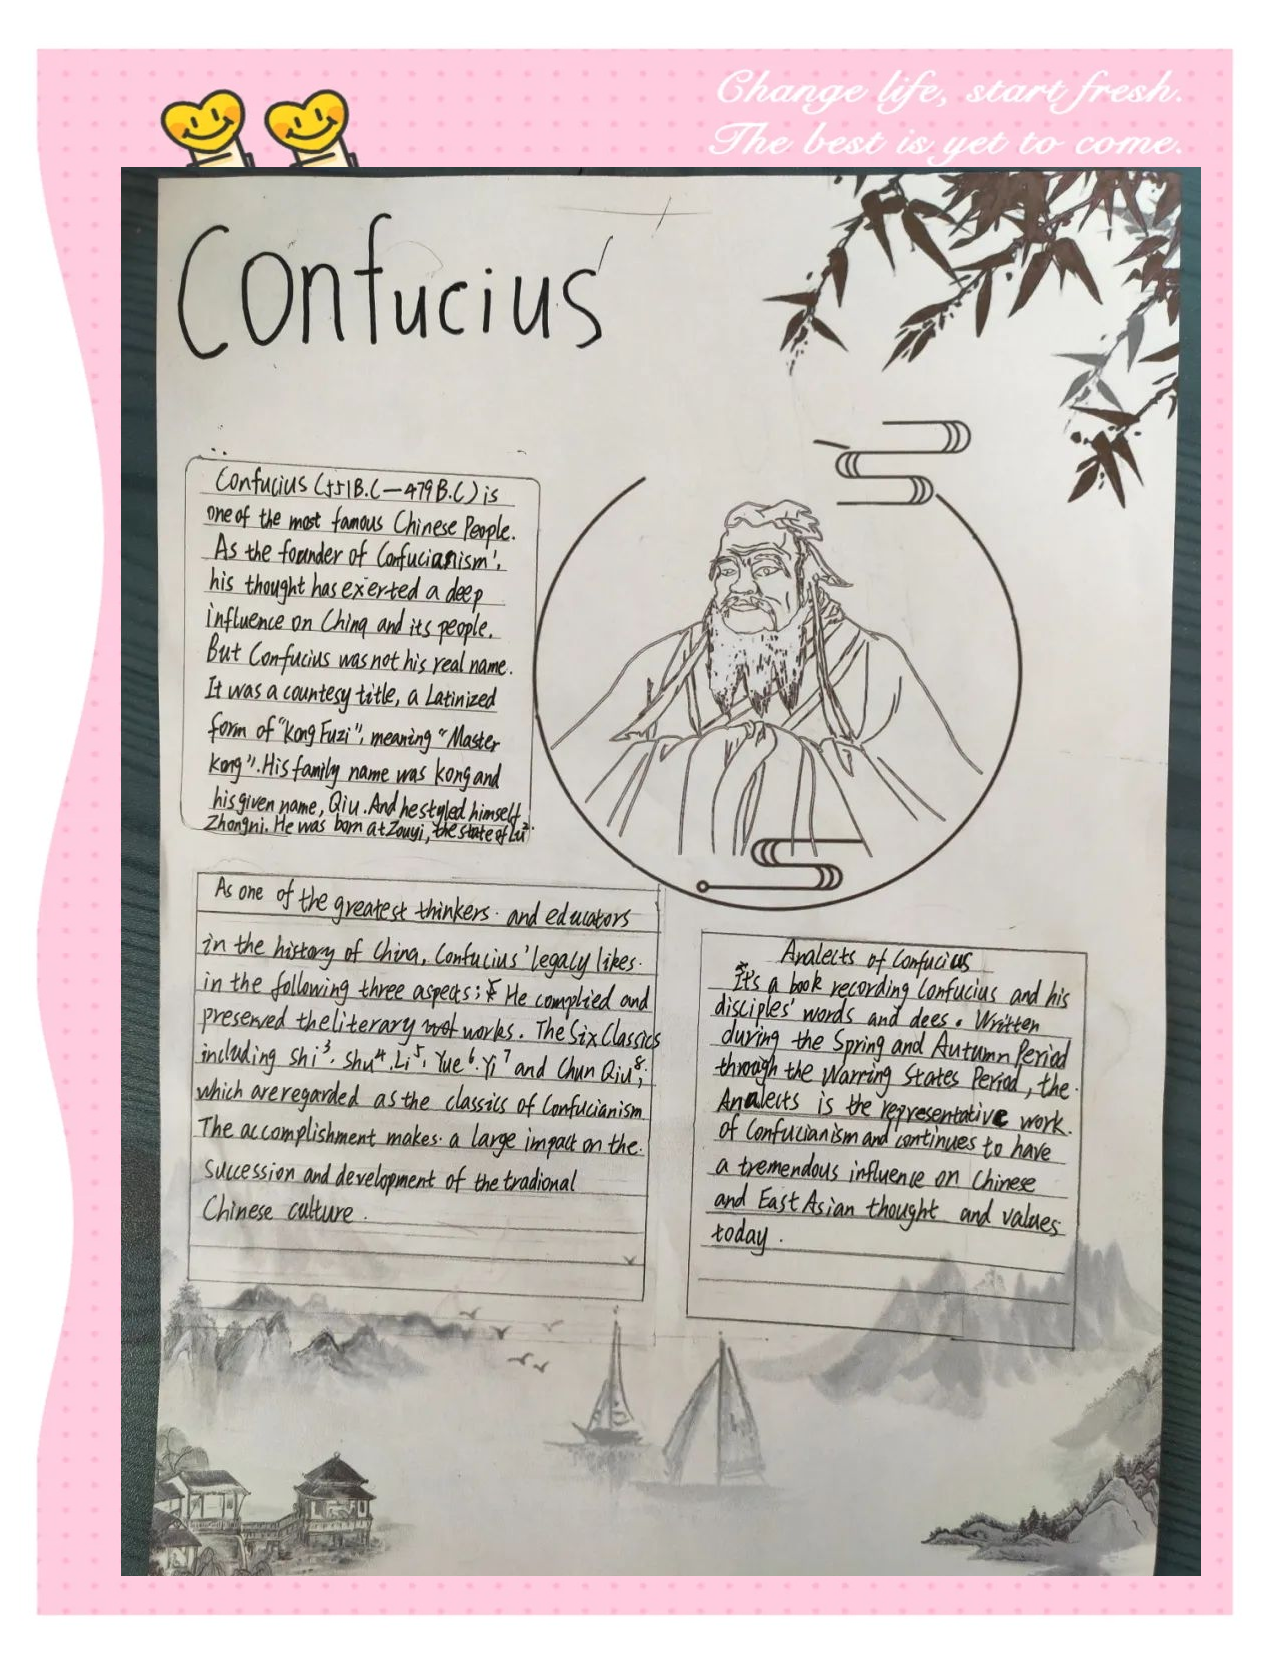 Change life, start fresh.
The best is yet to come.
Confucius
Confucius (551B.C—479B.C) is
one of the most famous Chinese People.
As the founder of Confucianism¹,
his thought has exerted a deep
influence on China and its people.
But Confucius was not his real name.
It was a countesy title, a Latinized
form of "kong Fuzi", meaning "Master
kong". His family name was kong and
his given name, Qiu. And he styled himself
Zhongni. He was born at Zouyi, the state of Lu².
As one of the greatest thinkers and educators
in the history of China, Confucius' legaly likes
in the following three aspects; He complied and
preserved the literary works. The Six Classics
including Shi³, Shu⁴, Li⁵, Yue⁶, Yi⁷ and Chun Qiu⁸,
which are regarded as the classics of Confucianism
The accomplishment makes a large impact on the
succession and development of the tradional
Chinese culture.
Analects of Confucius
It's a book recording Confucius and his
disciples' words and dees. Written
during the Spring and Autumn Period
through the Warring States Period, the
Analects is the representative work
of Confucianism and continues to have
a tremendous influence on Chinese
and East Asian thought and values
today.